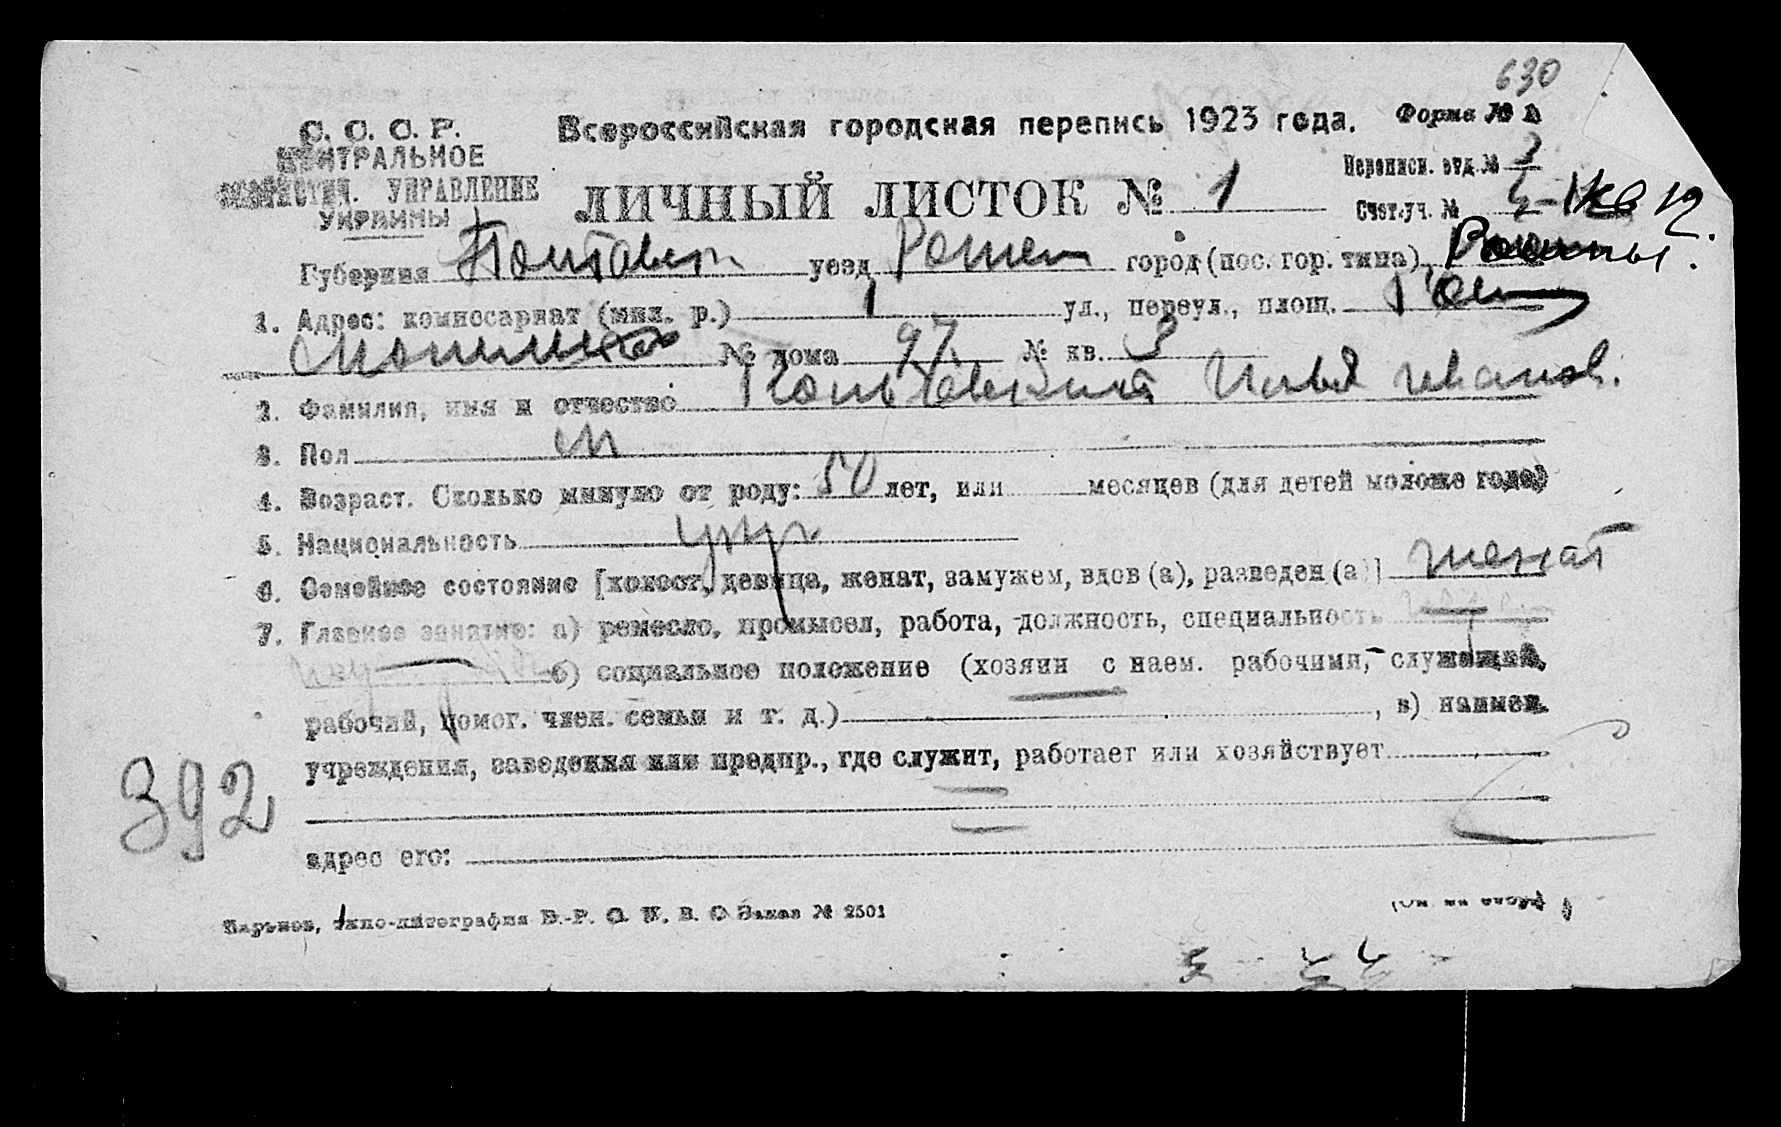 630
С. С. С. Р.
ЦЕНТРАЛЬНОЕ
СТАТИСТИЧ. УПРАВЛЕНИЕ
УКРАИНЫ
Всероссийская городская перепись 1923 года.
Форма № А
Переписн. отд. № 3
ЛИЧНЫЙ ЛИСТОК № 1
Счет.уч. №
Губерния Полтавск уезд Ромен город (пос. гор. типа) Ромны.
1. Адрес: комиссариат (мил. р.) 1 ул., переул., площ.
№ дома 97 № кв. 3
2. Фамилия, имя и отчество Илья Иванов.
3. Пол М
4. Возраст. Сколько минуло от роду: 50 лет, или месяцев (для детей моложе года)
5. Национальность укр
6. Семейное состояние [холост, девица, женат, замужем, вдов (а), разведен (а)] женат
7. Главное занятие: а) ремесло, промысел, работа, должность, специальность
б) социальное положение (хозяин с наем. рабочими, служащий,
рабочий, помог. член. семьи и т. д.) , в) наимен.
учреждения, заведения или предпр., где служит, работает или хозяйствует
392
адрес его:
Харьков, Типо-литография В.-Р. Заказ № 2501